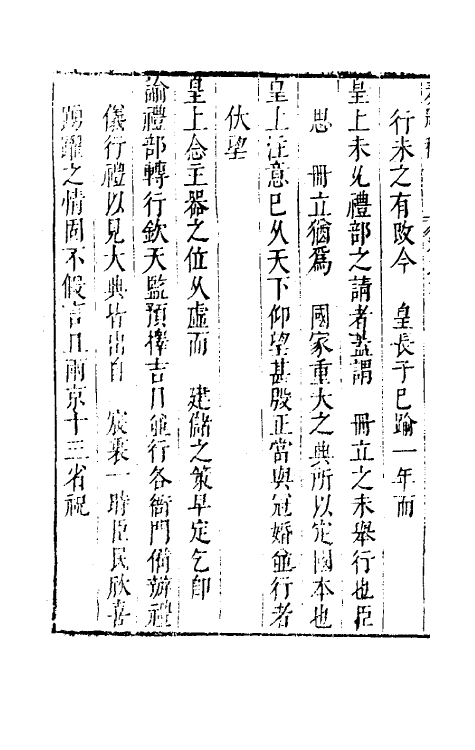 行未之有改今　皇長子已踰一年而
皇上未允禮部之請者蓋謂　冊立之未舉行也臣
思　冊立猶爲　國家重大之典所以定國本也
皇上注意已久天下仰望甚殷正當與冠婚並行者
伏望
皇上念主器之位久虛而　建儲之策早定乞即
諭禮部轉行欽天監預擇吉日並行各衙門備辦禮
儀行禮以見大典皆出自　宸衷一時臣民欣喜
踴躍之情固不假言且兩京十三省祝